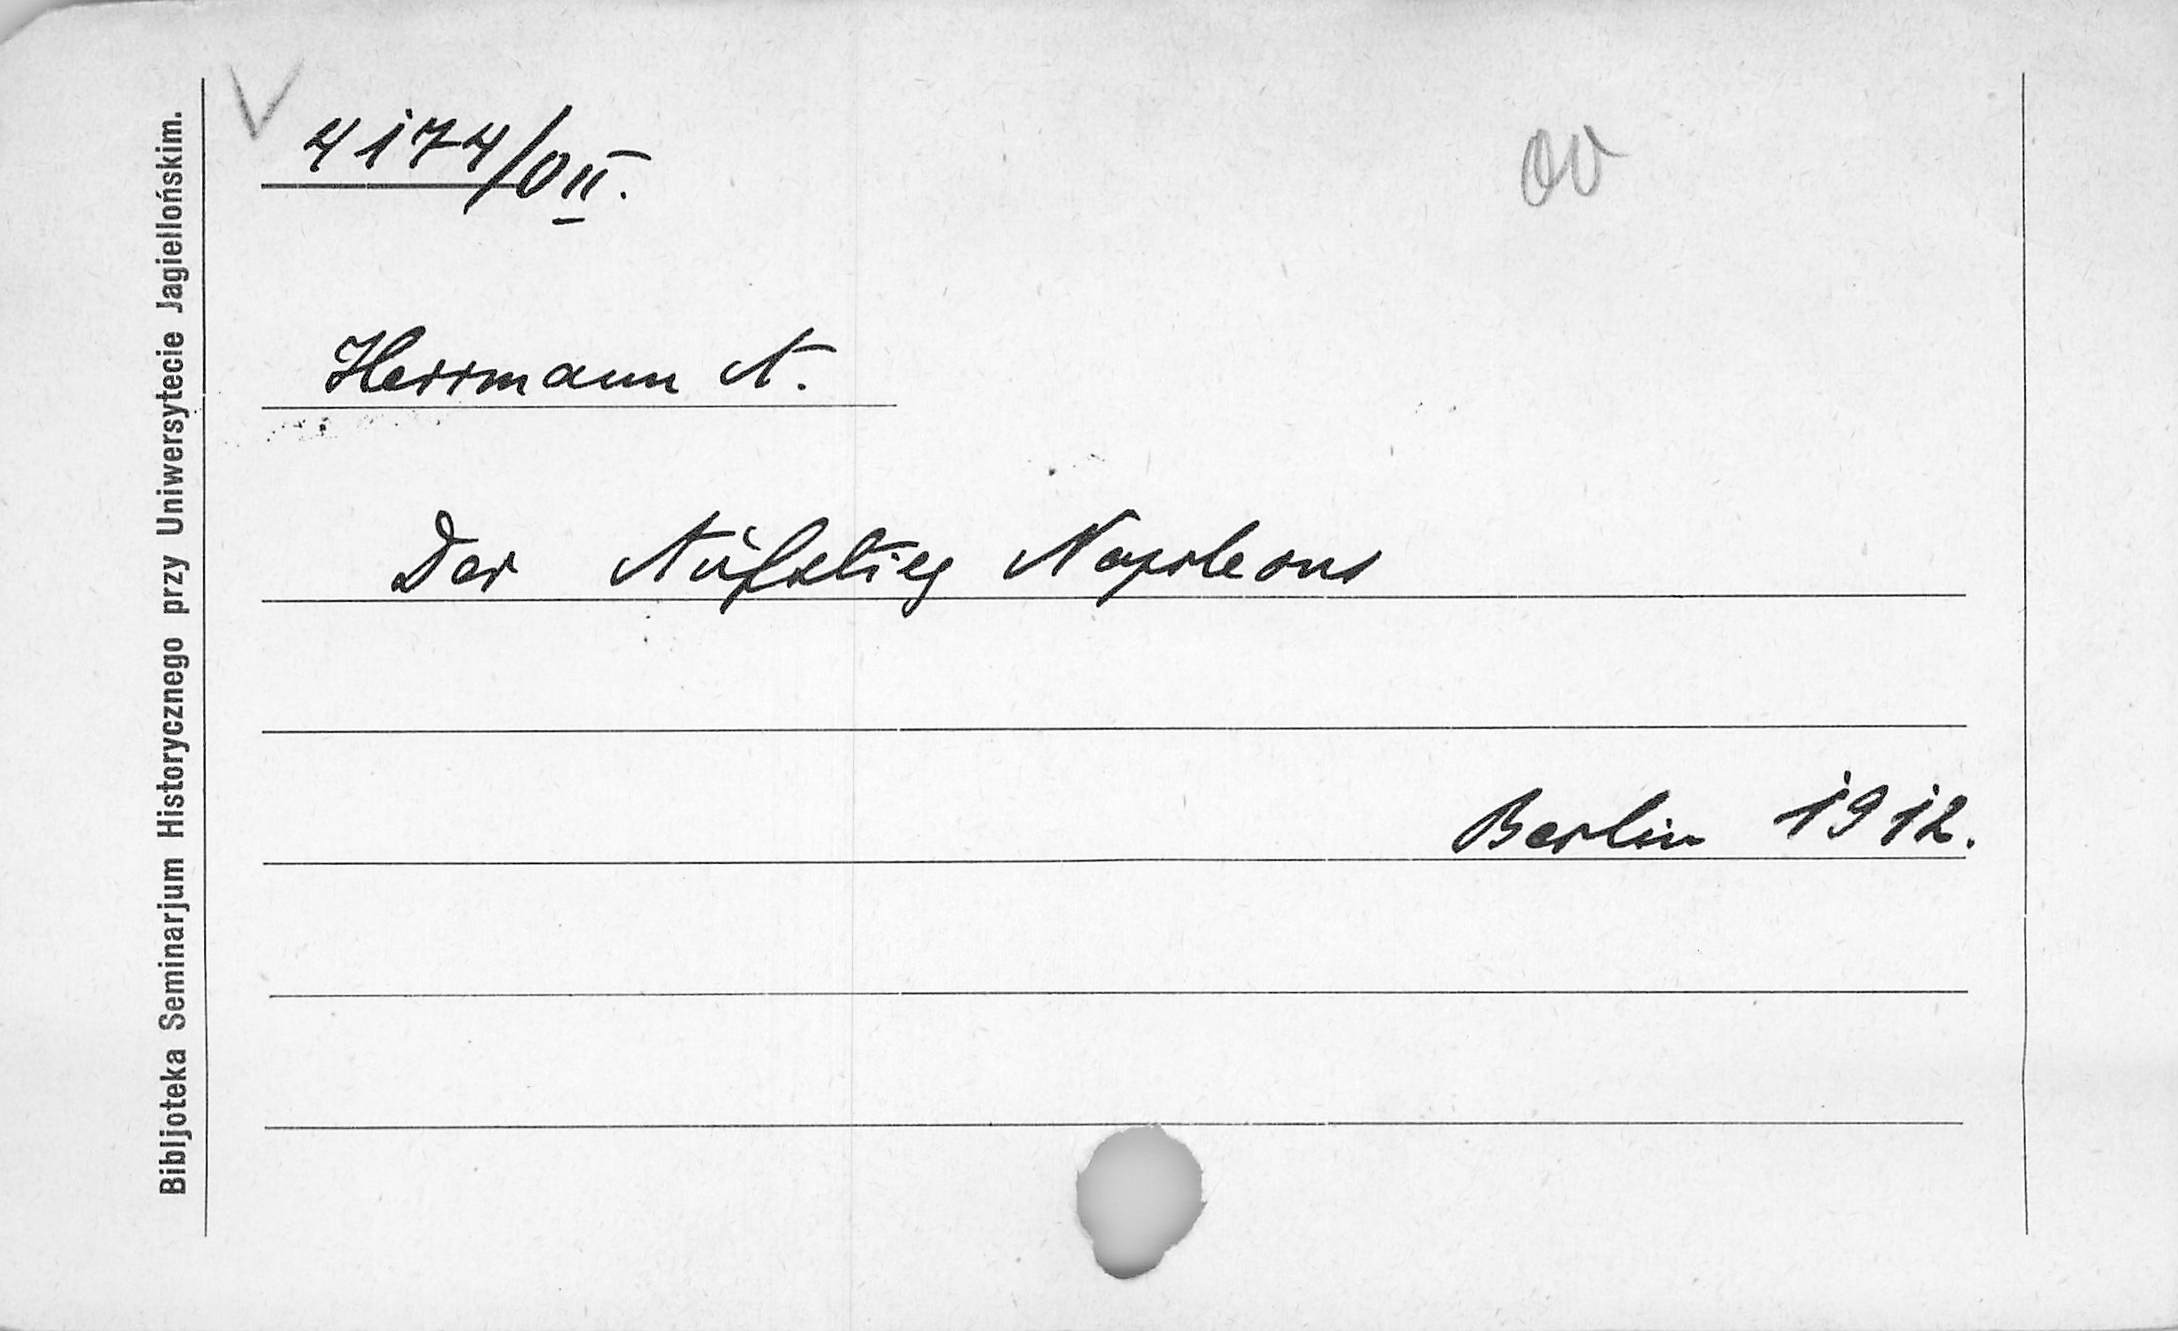 V
4174/OII.
OV
Herrmann A.
Der Aufstieg Napoleons
Berlin 1912.
Bibljoteka Seminarjum Historycznego przy Uniwersytecie Jagiellońskim.